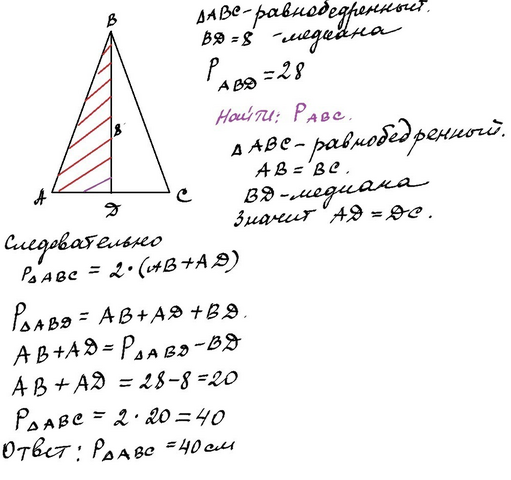 ΔABC-равнобедренный.
BD=8 -медиана
P ABD =28
Найти: P ABC.
Δ ABC- равнобедренный.
AB = BC.
BD-медиана
Значит AD = DC.
B
8
A
D
C
Следовательно
PΔABC = 2·(AB+AD)
PΔABD = AB+AD+BD.
AB+AD=PΔABD-BD
AB + AD = 28-8=20
PΔABC = 2·20=40
Ответ: PΔABC =40 см